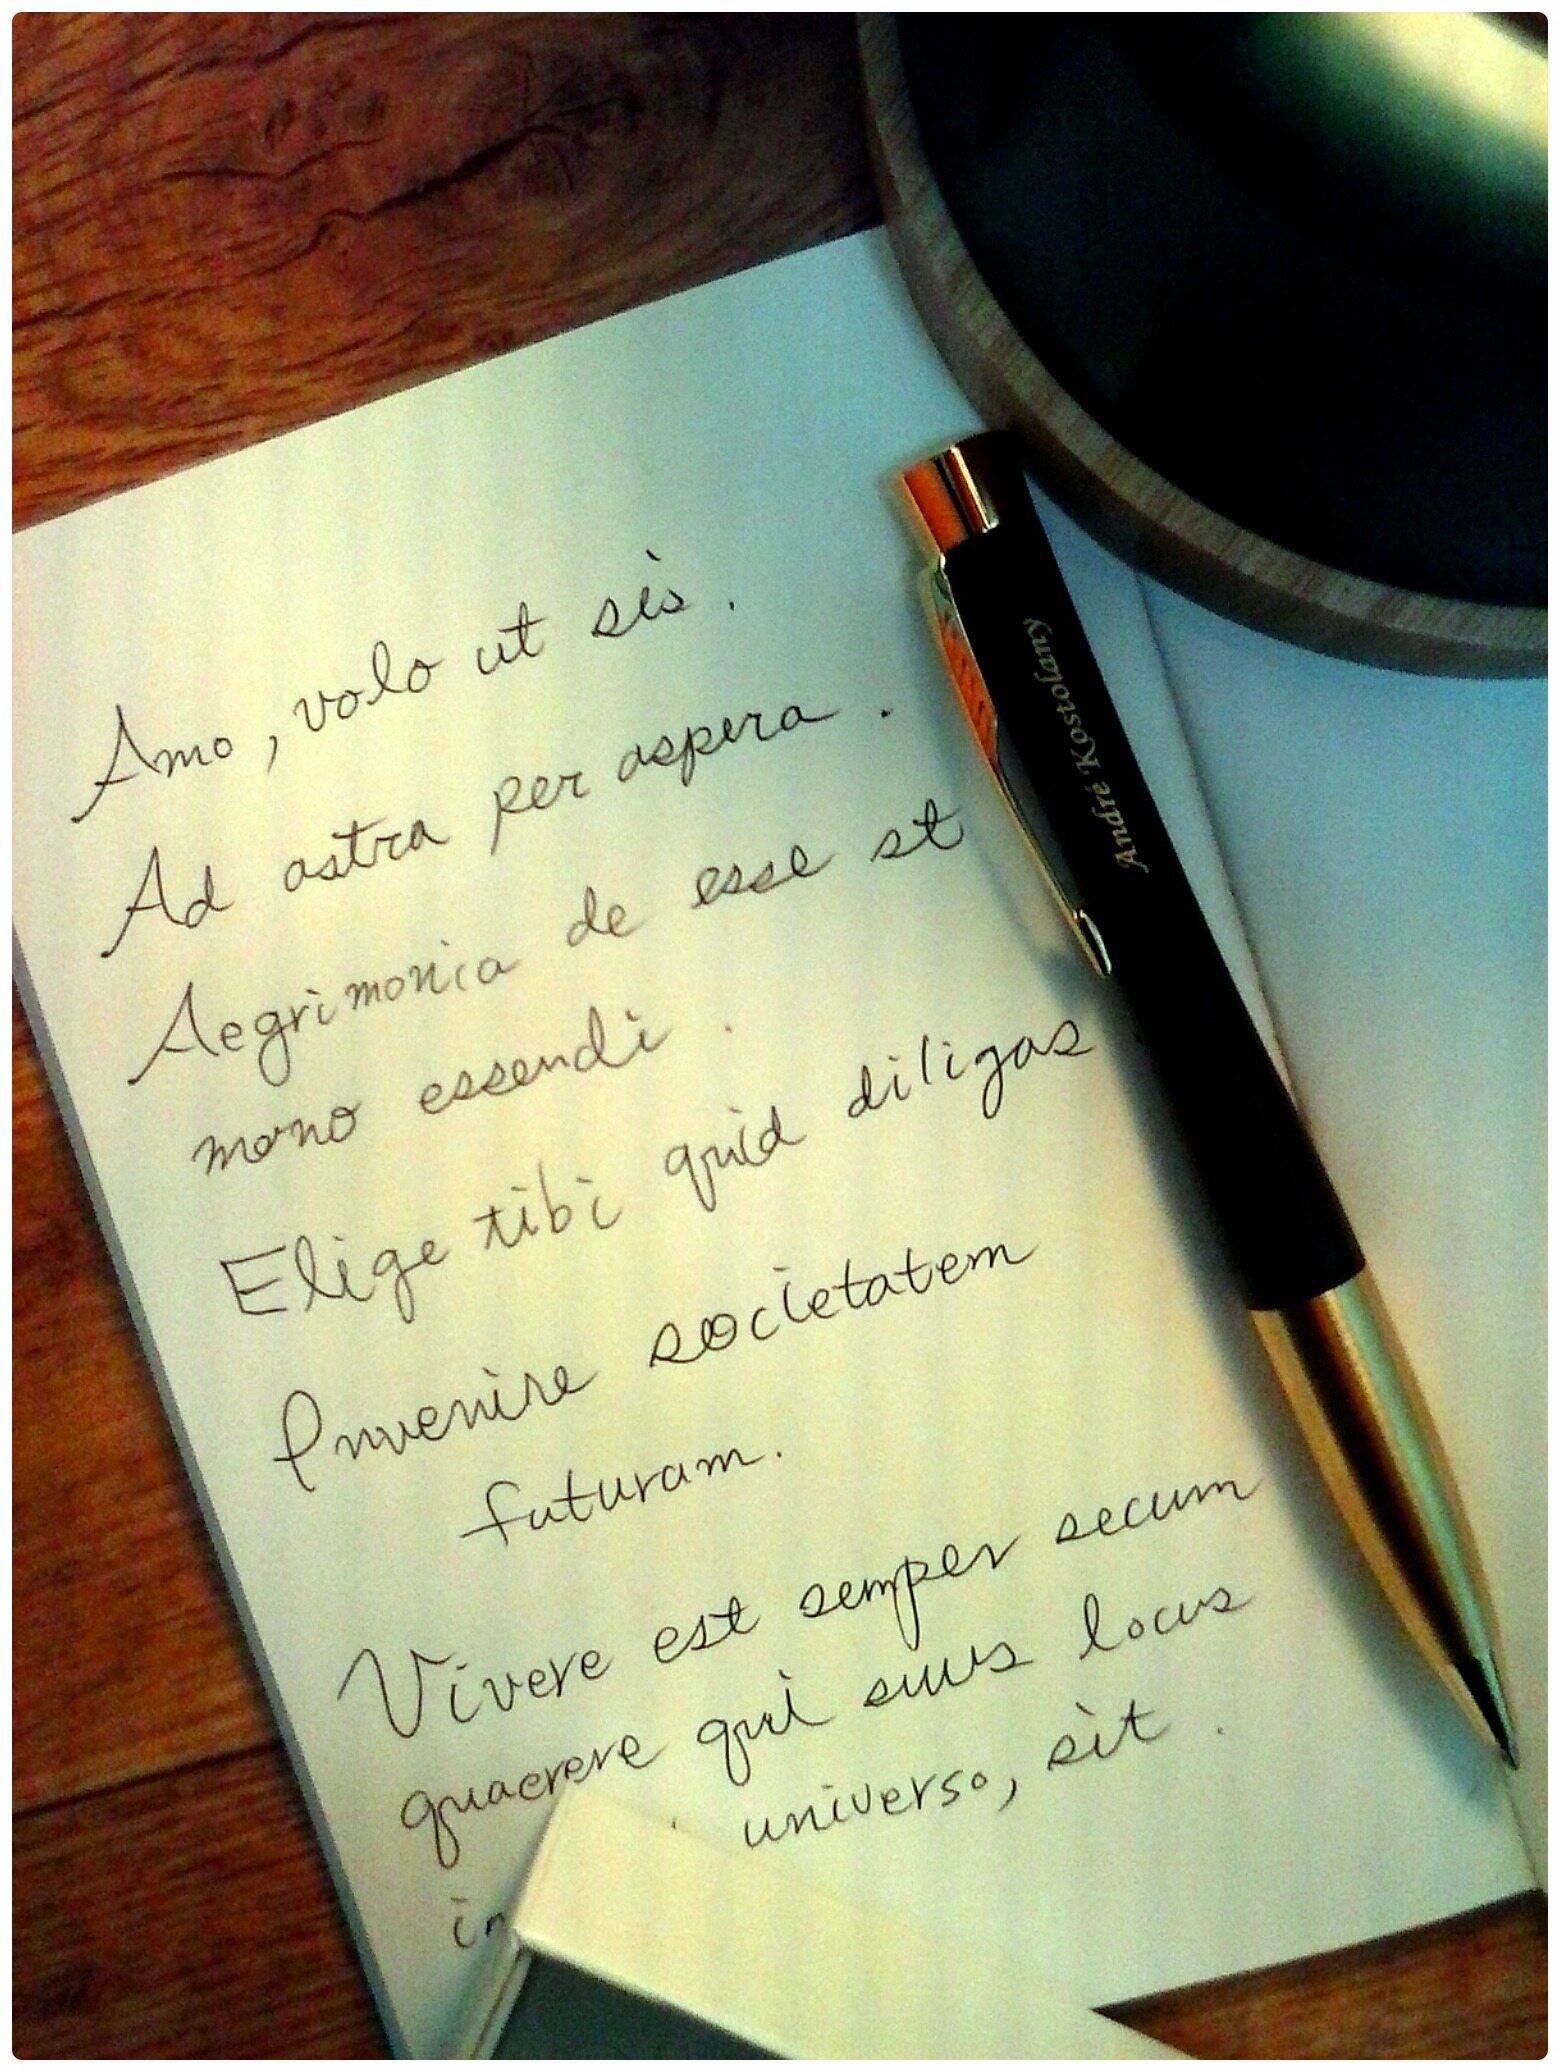 Amo, volo ut sis.
Ad astra per aspera.
Aegrimonia de esse st
mono essendi.
Elige tibi quid diligas
Invenire societatem
futuram.
Vivere est semper secum
quaerere qui suus locus
in universo, sit.
André Kostolany